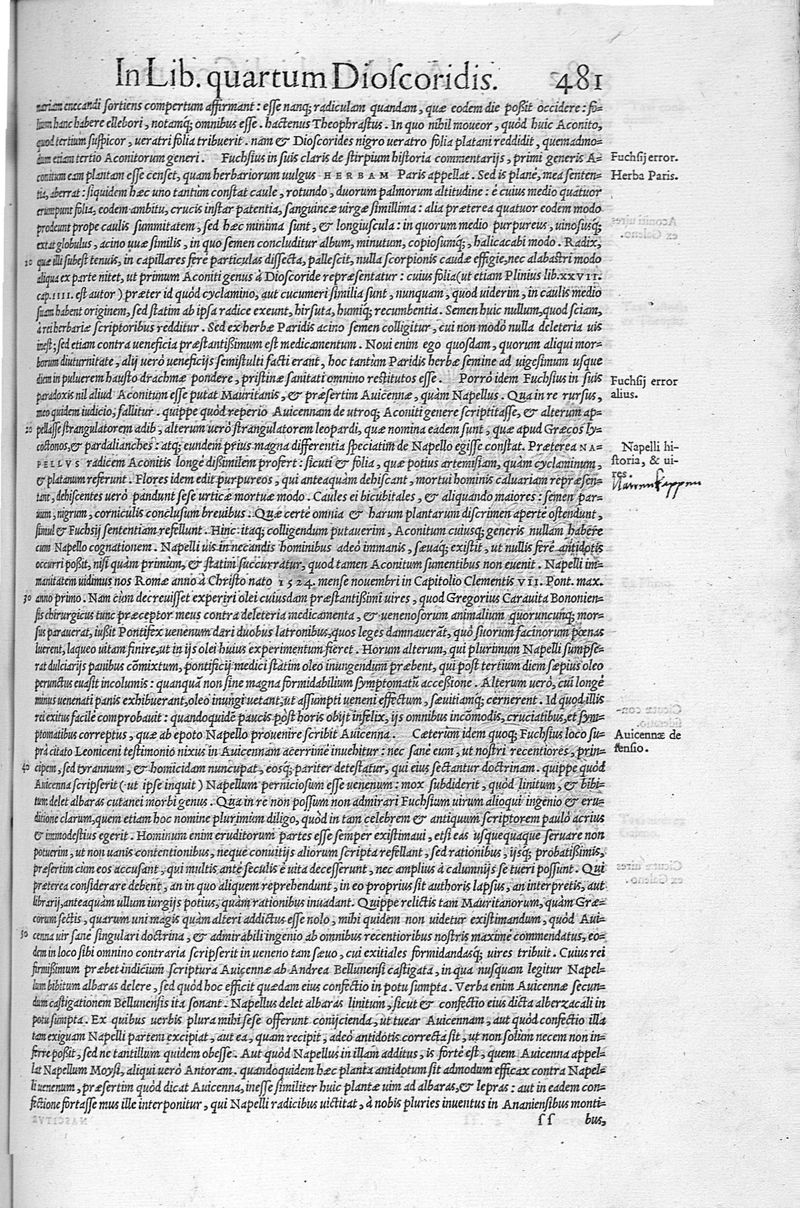 In Lib. quartum Dioſcoridis. 481
nariam enecandi ſortiens compertum affirmant: eſſe nanq; radiculam quandam, quæ eodem die poßit occidere: fo-
lium hanc habere ellebori, notamq; omnibus eſſe. hactenus Theophraſtus. In quo nihil moueor, quòd huic Aconito,
quod tertium ſuſpicor, ueratri folia tribuerit. nam & Dioſcorides nigro ueratro folia platani reddidit, quemadmo-
dum etiam tertio Aconitorum generi. Fuchſius in ſuis claris de ſtirpium hiſtoria commentarijs, primi generis A-
Fuchſij error.
conitum eam plantam eſſe cenſet, quam herbariorum uulgus HERBAM Paris appellat. Sed is planè, mea ſenten-
Herba Paris.
tia, aberrat: ſiquidem hæc uno tantùm conſtat caule, rotundo, duorum palmorum altitudine: è cuius medio quatuor
erumpunt folia, eodem ambitu, crucis inſtar patentia, ſanguineæ uirgæ ſimillima: alia præterea quatuor eodem modo
prodeunt prope caulis ſummitatem, ſed hæc minima ſunt, & longiuſcula: in quorum medio purpureus, uinoſusq;
extat globulus, acino quæ ſimilis, in quo ſemen concluditur album, minutum, copioſumq;, halicacabi modo. Radix,
10 quæ illi ſubeſt tenuis, in capillares ferè particulas diſſecta, palleſcit, nulla ſcorpionis caudæ effigie, nec alabaſtri modo
aliqua ex parte nitet, ut primum Aconiti genus à Dioſcoride repræſentatur: cuius folia (ut etiam Plinius lib. XXVII.
cap. IIII. eſt autor) præter id quòd cyclamino, aut cucumeri ſimilia ſunt, nunquam, quod uiderim, in caulis medio
ſuam habent originem, ſed ſtatim ab ipſa radice exeunt, hirſuta, humiq; recumbentia. Semen huic nullum, quod ſciam,
à rei herbariæ ſcriptoribus redditur. Sed ex herbæ Paridis acino ſemen colligitur, cui non modò nulla deleteria uis
ineſt; ſed etiam contra ueneficia præſtantißimum eſt medicamentum. Noui enim ego quoſdam, quorum aliqui mor-
borum diuturnitate, alij uerò ueneficijs ſemiſtulti facti erant, hoc tantùm Paridis herbæ ſemine ad uigeſimum uſque
diem in puluerem hauſto drachmæ pondere, priſtinæ ſanitati omnino reſtitutos eſſe. Porrò idem Fuchſius in ſuis
Fuchſij error
paradoxis nil aliud Aconitum eſſe putat Mauritanis, & præſertim Auicennæ, quàm Napellus. Qua in re rurſus,
alius.
meo quidem iudicio, fallitur. quippe quòd reperio Auicennam de utroq; Aconiti genere ſcriptitaſſe, & alterum ap-
20 pellaſſe ſtrangulatorem adib, alterum uerò ſtrangulatorem leopardi, quæ nomina eadem ſunt, quæ apud Græcos ly-
coctonos, & pardalianches: atq; eundem prius magna differentia ſpeciatim de Napello egiſſe conſtat. Præterea NA-
Napelli hi-
PELLVS radicem Aconitis longè dißimilem profert: ſicuti & folia, quæ potius artemiſiam, quàm cyclaminum,
ſtoria, & ui-
& platanum referunt. Flores idem edit purpureos, qui anteaquàm dehiſcant, mortui hominis caluariam repræſen-
res.
tant, dehiſcentes uerò pandunt ſeſe urticæ mortuæ modo. Caules ei bicubitales, & aliquando maiores: ſemen par-
uum, nigrum, corniculis concluſum breuibus: Quæ certè omnia & harum plantarum diſcrimen apertè oſtendunt,
ſimul & Fuchſij ſententiam refellunt. Hinc itaq; colligendum putauerim, Aconitum cuiuſq; generis nullam habere
cum Napello cognationem. Napelli uis in necandis hominibus adeò immanis, ſæuaq; exiſtit, ut nullis ferè antidotis
occurri poßit, niſi quàm primùm, & ſtatim ſuccurratur, quod tamen Aconitum ſumentibus non euenit. Napelli im-
manitatem uidimus nos Romæ anno à Chriſto nato 1524. menſe nouembri in Capitolio Clementis VII. Pont. max.
30 anno primo. Nam cùm decreuiſſet experiri olei cuiuſdam præſtantißimi uires, quod Gregorius Carauita Bononien-
ſis chirurgicus tunc præceptor meus contra deleteria medicamenta, & uenenoſorum animalium quoruncunq; mor-
ſus parauerat, iußit Pontifex uenenum dari duobus latronibus, quos leges damnauerāt, quò ſuorum facinorum pœnas
luerent, laqueo uitam finire, ut in ijs olei huius experimentum fieret. Horum alterum, qui plurimum Napelli ſumpſe-
rat dulciarijs panibus cōmixtum, pontificij medici ſtatim oleo inungendum præbent, qui poſt tertium diem ſæpius oleo
perunctus euaſit incolumis: quanquā non ſine magna formidabilium ſymptomatū acceßione. Alterum uerò, cui longè
minus uenenati panis exhibuerant, oleo inungi uetant, ut aſſumpti ueneni effectum, ſæuitiamq; cernerent. Id quod illis
rei exitus facilè comprobauit: quandoquidē paucis pòſt horis obijt infelix, ijs omnibus incōmodis, cruciatibus, et ſym-
ptomatibus correptus, quæ ab epoto Napello prouenire ſcribit Auicenna. Cæterùm idem quoq; Fuchſius loco ſu-
Auicennæ de
prà citato Leoniceni teſtimonio nixus in Auicennam acerrimè inuehitur: nec ſanè eum, ut noſtri recentiores, prin-
fenſio.
40 cipem, ſed tyrannum, & homicidam nuncupat, eosq; pariter deteſtatur, qui eius ſectantur doctrinam. quippe quòd
Auicenna ſcripſerit (ut ipſe inquit) Napellum pernicioſum eſſe uenenum: mox ſubdiderit, quòd linitum, & bibi-
tum delet albaras cutanei morbi genus. Qua in re non poſſum non admirari Fuchſium uirum alioqui ingenio & eru-
ditione clarum, quem etiam hoc nomine plurimùm diligo, quòd in tam celebrem & antiquum ſcriptorem paulò acrius
& immodeſtius egerit. Hominum enim eruditorum partes eſſe ſemper exiſtimaui, etſi eas uſquequaque ſeruare non
potuerim, ut non uanis contentionibus, neque conuitijs aliorum ſcripta refellant, ſed rationibus, ijſq; probatißimis,
præſertim cùm eos accuſant, qui multis antè ſeculis è uita deceſſerunt, nec amplius à calumnijs ſe tueri poſſunt. Qui
præterea conſiderare debent, an in quo aliquem reprehendunt, in eo proprius ſit authoris lapſus, an interpretis, aut
librarij, anteaquàm ullum iurgijs potius, quàm rationibus inuadant. Quippe relictis tam Mauritanorum, quàm Græ-
corum ſectis, quarum uni magis quàm alteri addictus eſſe nolo, mihi quidem non uidetur exiſtimandum, quòd Aui-
50 cenna uir ſanè ſingulari doctrina, & admirabili ingenio ab omnibus recentioribus noſtris maximè commendatus, eo-
dem in loco ſibi omnino contraria ſcripſerit in ueneno tam ſæuo, cui exitiales formidandasq; uires tribuit. Cuius rei
firmißimum præbet indicium ſcriptura Auicennæ ab Andrea Bellunenſi caſtigata, in qua nuſquam legitur Napel-
lum bibitum albaras delere, ſed quòd hoc efficit quædam eius confectio in potu ſumpta. Verba enim Auicennæ ſecun-
dum caſtigationem Bellunenſis ita ſonant. Napellus delet albaras linitum, ſicut & confectio eius dicta alberzacali in
potu ſumpta. Ex quibus uerbis plura mihi ſeſe offerunt conijcienda, ut tuear Auicennam, aut quòd confectio illa
tam exiguam Napelli partem excipiat, aut ea, quam recipit, adeò antidotis correcta ſit, ut non ſolùm necem non in-
ferre poßit, ſed ne tantillum quidem obeſſe. Aut quòd Napellus in illam additus, is fortè eſt, quem Auicenna appel-
lat Napellum Moyſi, aliqui uerò Antoram. quandoquidem hæc planta antidotum ſit admodum efficax contra Napel-
li uenenum, præſertim quòd dicat Auicenna, ineſſe ſimiliter huic plantæ uim ad albaras, & lepras: aut in eadem con-
fectione fortaſſe mus ille interponitur, qui Napelli radicibus uictitat, à nobis pluries inuentus in Ananienſibus monti-
ſſ bus,